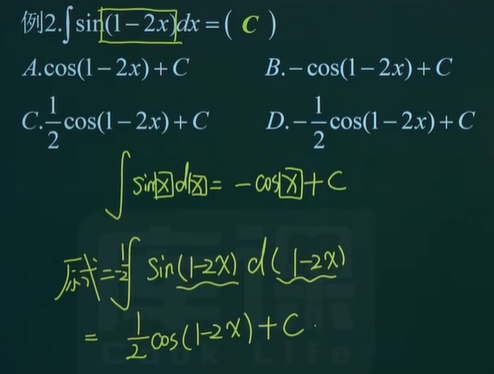 例2.∫sin(1-2x)dx=( C )
A.cos(1-2x)+C B.-cos(1-2x)+C
C.1/2cos(1-2x)+C D.-1/2cos(1-2x)+C
∫sin[x]d[x]=-cos[x]+C
原式=-1/2∫sin(1-2x)d(1-2x)
=1/2cos(1-2x)+C.